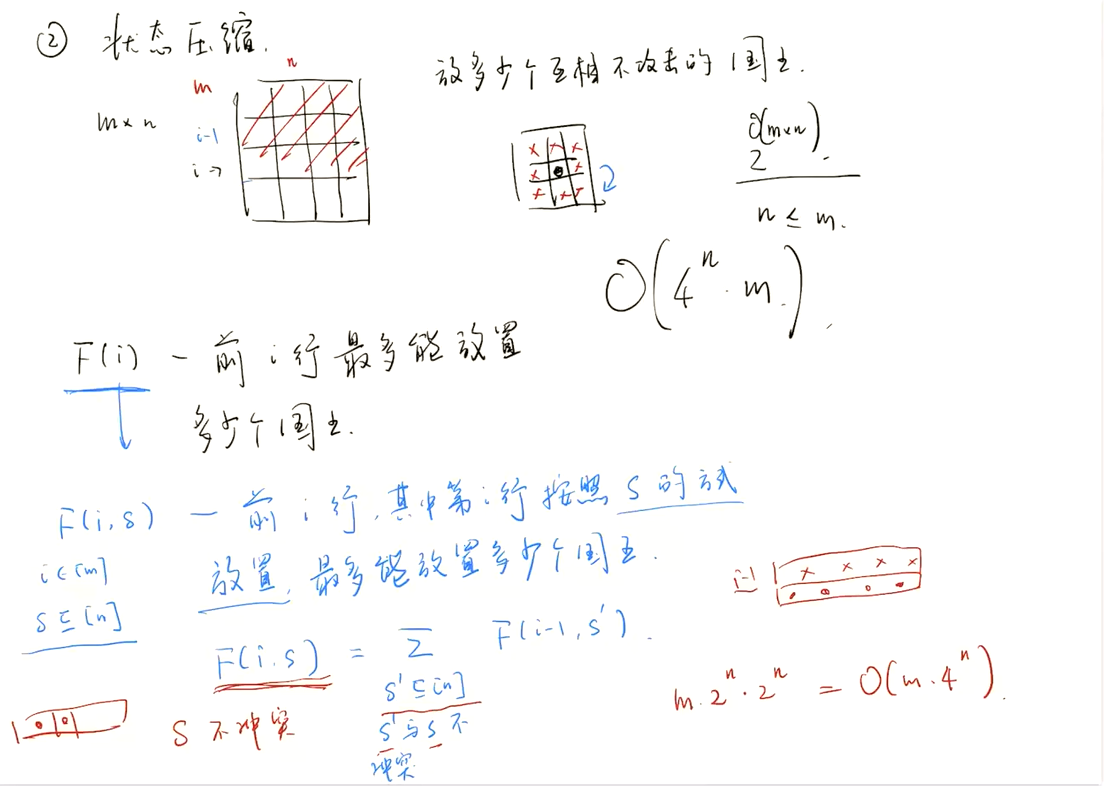 ② 状态压缩.
m×n
m
n
i-1
i→
放多少个互相不攻击的国王.
2^O(m×n).
n ≤ m.
O(4^n · m).
F(i) — 前 i 行最多能放置
多少个国王.
F(i,s) — 前 i 行,其中第 i 行按照 S 的方式
放置,最多能放置多少个国王.
i∈[m]
S⊆[n]
F(i,s) = Σ F(i-1,s').
s'⊆[n]
s'与s不
冲突
S 不冲突
i-1
m·2^n·2^n = O(m·4^n).